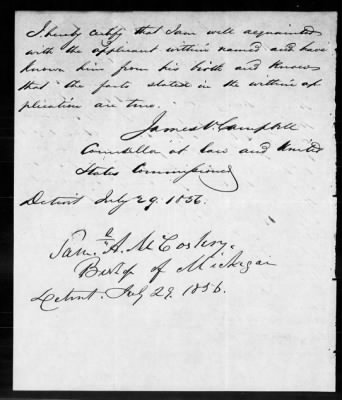 I hereby certify that I am well acquainted
with the applicant within named and have
known him from his birth and knows
that the facts stated in the within ap
plication are true.
James V. Campbell
Councellor at law and United
States Commissioner
Detroit July 29. 1856.
Saml. A. McCoskry.
Bishop of Michigan
Detroit. July 29. 1856.